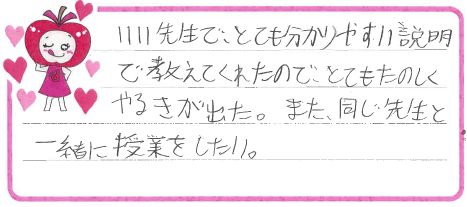 いい先生で、とても分かりやすい説明
で教えてくれたので、とてもたのしく
やるきが出た。また、同じ先生と
一緒に授業をしたい。